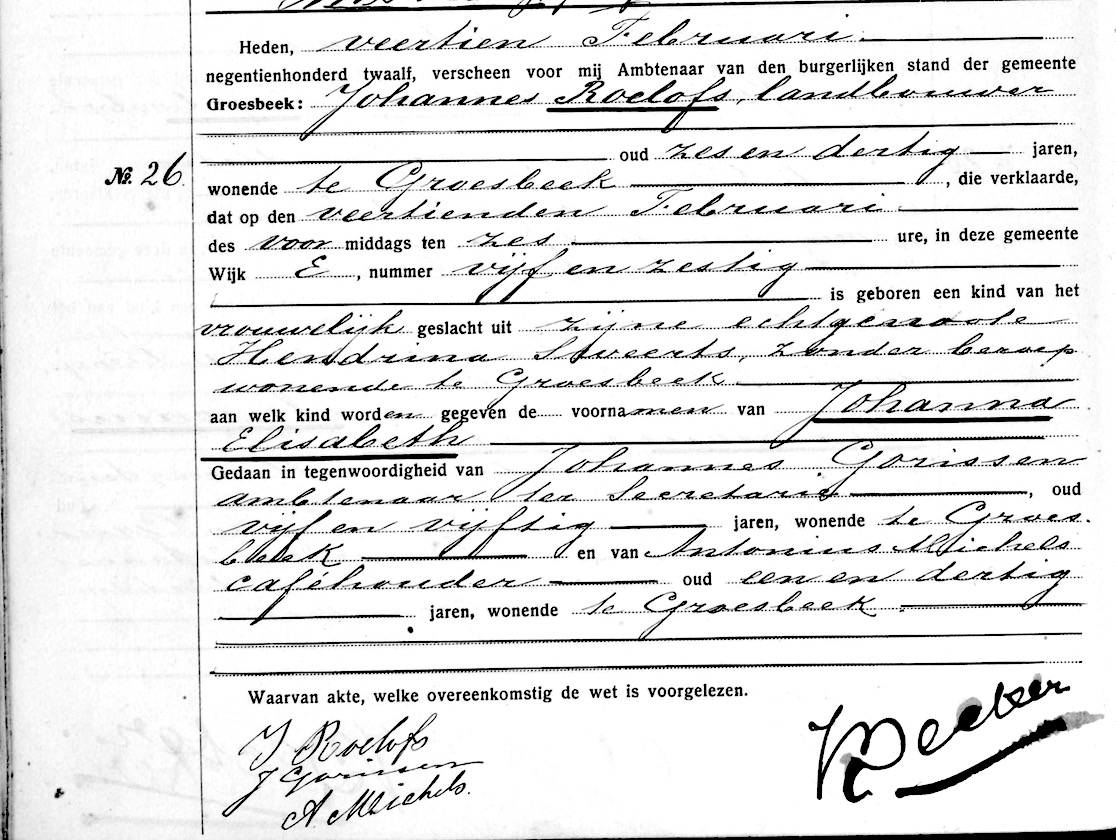 Heden, veertien Februari
negentienhonderd twaalf, verscheen voor mij Ambtenaar van den burgerlijken stand der gemeente
Groesbeek: Johannes Roelofs, landbouwer
oud zes en dertig jaren,
No. 26.
wonende te Groesbeek, die verklaarde,
dat op den veertienden Februari
des voor middags ten zes ure, in deze gemeente
Wijk E, nummer vijf en zestig
is geboren een kind van het
vrouwelijk geslacht uit zijne echtgenoote
Hendrina Sweerts, zonder beroep
wonende te Groesbeek
aan welk kind worden gegeven de voornamen van Johanna
Elisabeth
Gedaan in tegenwoordigheid van Johannes Gorissen
ambtenaar ter Secretarie, oud
vijf en vijftig jaren, wonende te Groes-
beek en van Antonius Michels
caféhouder oud een en dertig
jaren, wonende te Groesbeek.
Waarvan akte, welke overeenkomstig de wet is voorgelezen.
J Roelofs
J Gorissen
A Michels.